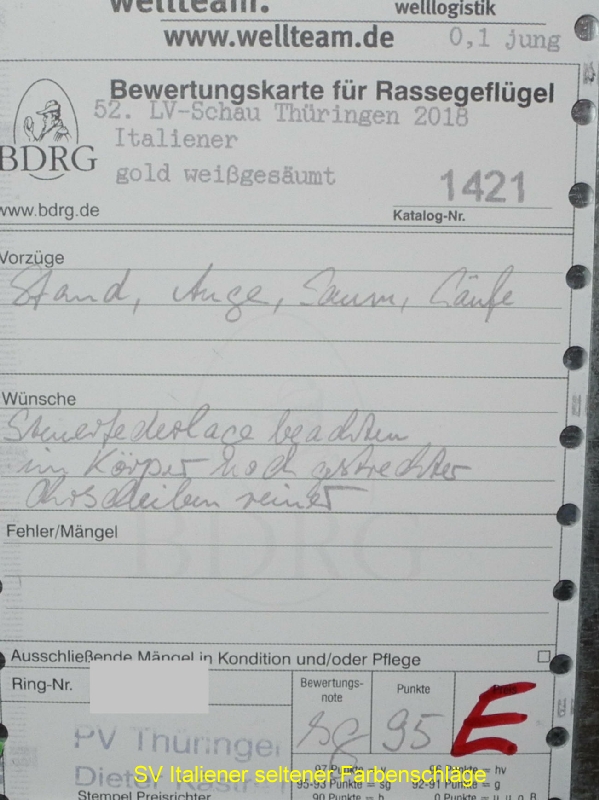 wellteam.
welllogistik
www.wellteam.de
0,1 jung
Bewertungskarte für Rassegeflügel
52. LV-Schau Thüringen 2018
Italiener
gold weißgesäumt
BDRG
1421
www.bdrg.de
Katalog-Nr.
Vorzüge
Stand, Auge, Saum, Läufe
Wünsche
Steuerfederlage beachten
im Körper noch gstreckter
Ohrscheiben reiner
Fehler/Mängel
BDRG
Ausschließende Mängel in Kondition und/oder Pflege
Ring-Nr.
Bewertungs-
note
Punkte
Preis
sg
95
E
PV Thüringen
Dieter
SV Italiener seltener Farbenschläge
97 Punkte = v
96 Punkte = hv
95-93 Punkte = sg
92-91 Punkte = g
Stempel Preisrichter
90 Punkte = b
0 Punkte = u, n, o.B.